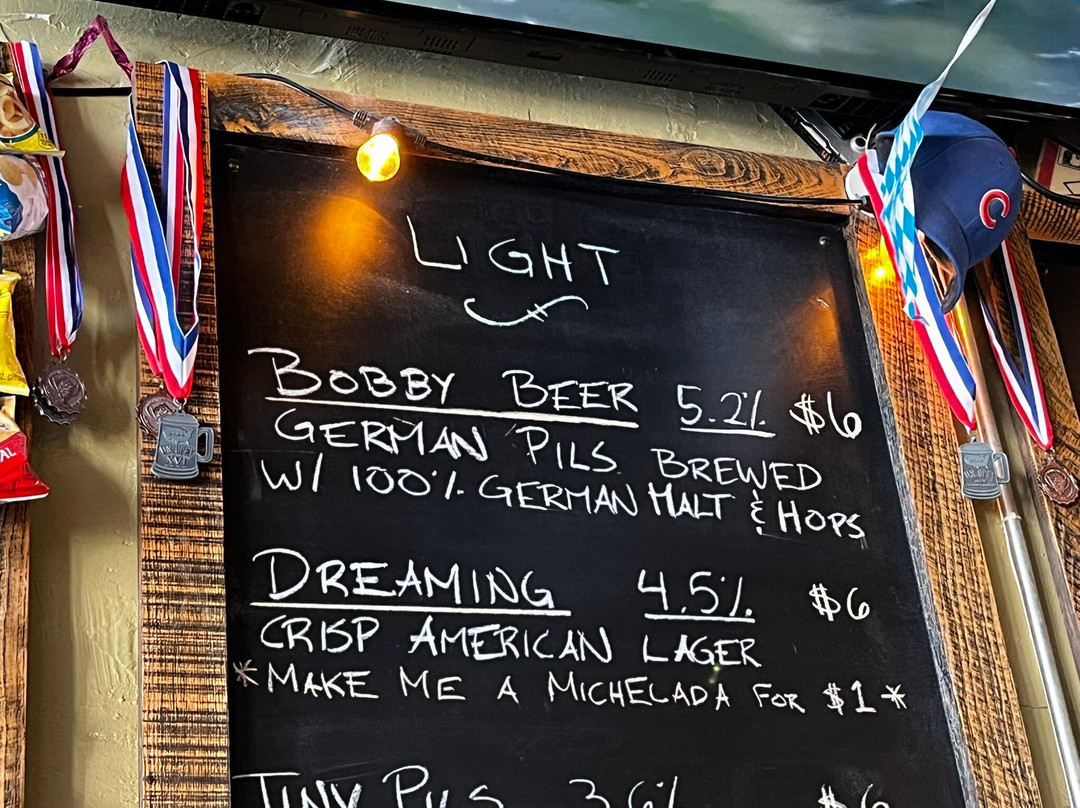 LIGHT
BOBBY BEER 5.2% $6
GERMAN PILS BREWED
W/ 100% GERMAN MALT & HOPS
DREAMING 4.5% $6
CRISP AMERICAN LAGER
*MAKE ME A MICHELADA FOR $1*
TINY PILS 3.6% $6
C